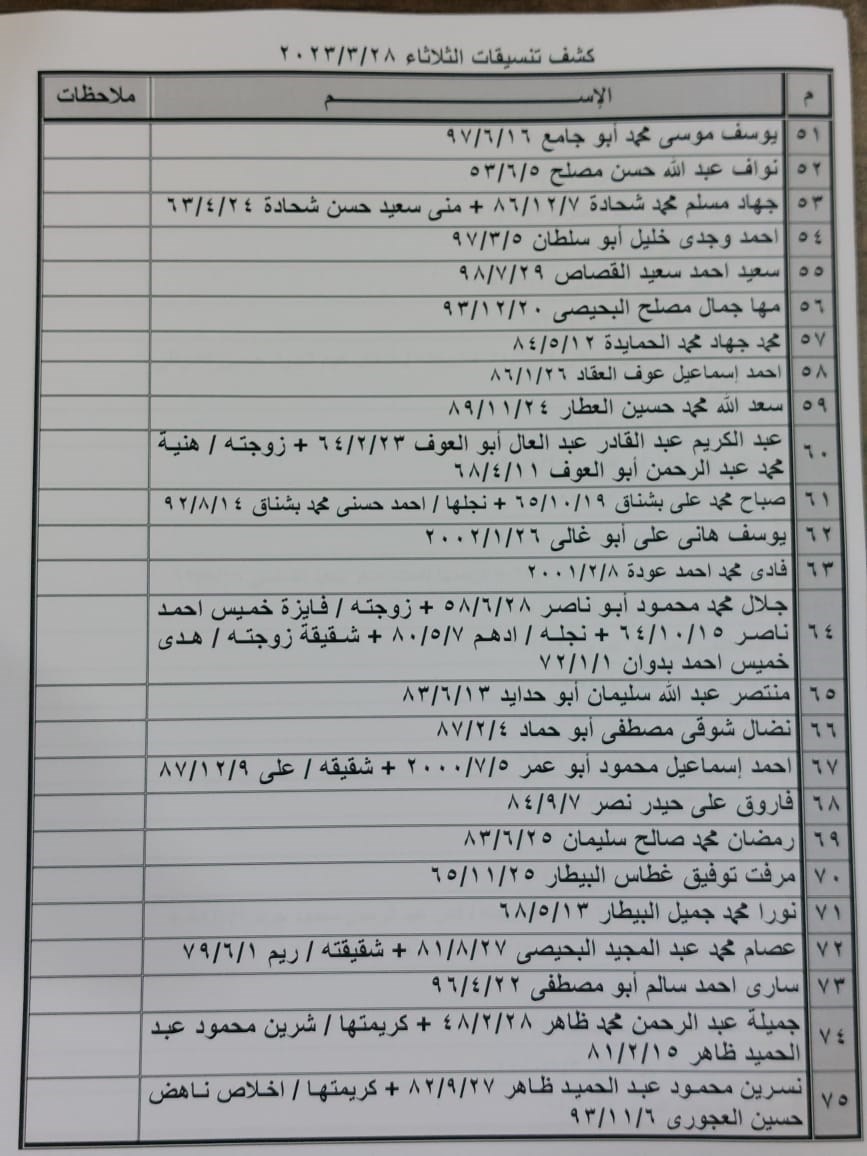 كشف تنسيقات الثلاثاء ٢٠٢٣/٣/٢٨
م الإســـــم ملاحظات
٥١ يوسف موسى محمد أبو جامع ٩٧/٦/١٦
٥٢ نواف عبد الله حسن مصلح ٥٣/٦/٥
٥٣ جهاد مسلم محمد شحادة ٨٦/١٢/٧ + منى سعيد حسن شحادة ٦٣/٤/٢٤
٥٤ احمد وجدى خليل أبو سلطان ٩٧/٣/٥
٥٥ سعيد احمد سعيد القصاص ٩٨/٧/٢٩
٥٦ مها جمال مصلح البحيصى ٩٣/١٢/٢٠
٥٧ محمد جهاد محمد الحمايدة ٨٤/٥/١٢
٥٨ احمد إسماعيل عوف العقاد ٨٦/١/٢٦
٥٩ سعد الله محمد حسين العطار ٨٩/١١/٢٤
٦٠ عبد الكريم عبد القادر عبد العال أبو العوف ٦٤/٢/٢٣ + زوجته / هنية
محمد عبد الرحمن أبو العوف ٦٨/٤/١١
٦١ صباح محمد على بشناق ٦٥/١٠/١٩ + نجلها / احمد حسنى محمد بشناق ٩٢/٨/١٤
٦٢ يوسف هانى على أبو غالى ٢٠٠٢/١/٢٦
٦٣ فادى محمد احمد عودة ٢٠٠١/٢/٨
٦٤ جلال محمد محمود أبو ناصر ٥٨/٦/٢٨ + زوجته / فايزة خميس احمد
ناصر ٦٤/١٠/١٥ + نجله / ادهم ٨٠/٥/٧ + شقيقة زوجته / هدى
خميس احمد بدوان ٧٢/١/١
٦٥ منتصر عبد الله سليمان أبو حدايد ٨٣/٦/١٣
٦٦ نضال شوقى مصطفى أبو حماد ٨٧/٢/٤
٦٧ احمد إسماعيل محمود أبو عمر ٢٠٠٠/٧/٥ + شقيقه / على ٨٧/١٢/٩
٦٨ فاروق على حيدر نصر ٨٤/٩/٧
٦٩ رمضان محمد صالح سليمان ٨٣/٦/٢٥
٧٠ مرفت توفيق غطاس البيطار ٦٥/١١/٢٥
٧١ نورا محمد جميل البيطار ٦٨/٥/١٣
٧٢ عصام محمد عبد المجيد البحيصى ٨١/٨/٢٧ + شقيقته / ريم ٧٩/٦/١
٧٣ سارى احمد سالم أبو مصطفى ٩٦/٤/٢٢
٧٤ جميلة عبد الرحمن محمد ظاهر ٤٨/٢/٢٨ + كريمتها / شرين محمود عبد
الحميد ظاهر ٨١/٢/١٥
٧٥ نسرين محمود عبد الحميد ظاهر ٨٢/٩/٢٧ + كريمتها / اخلاص ناهض
حسين العجورى ٩٣/١١/٦